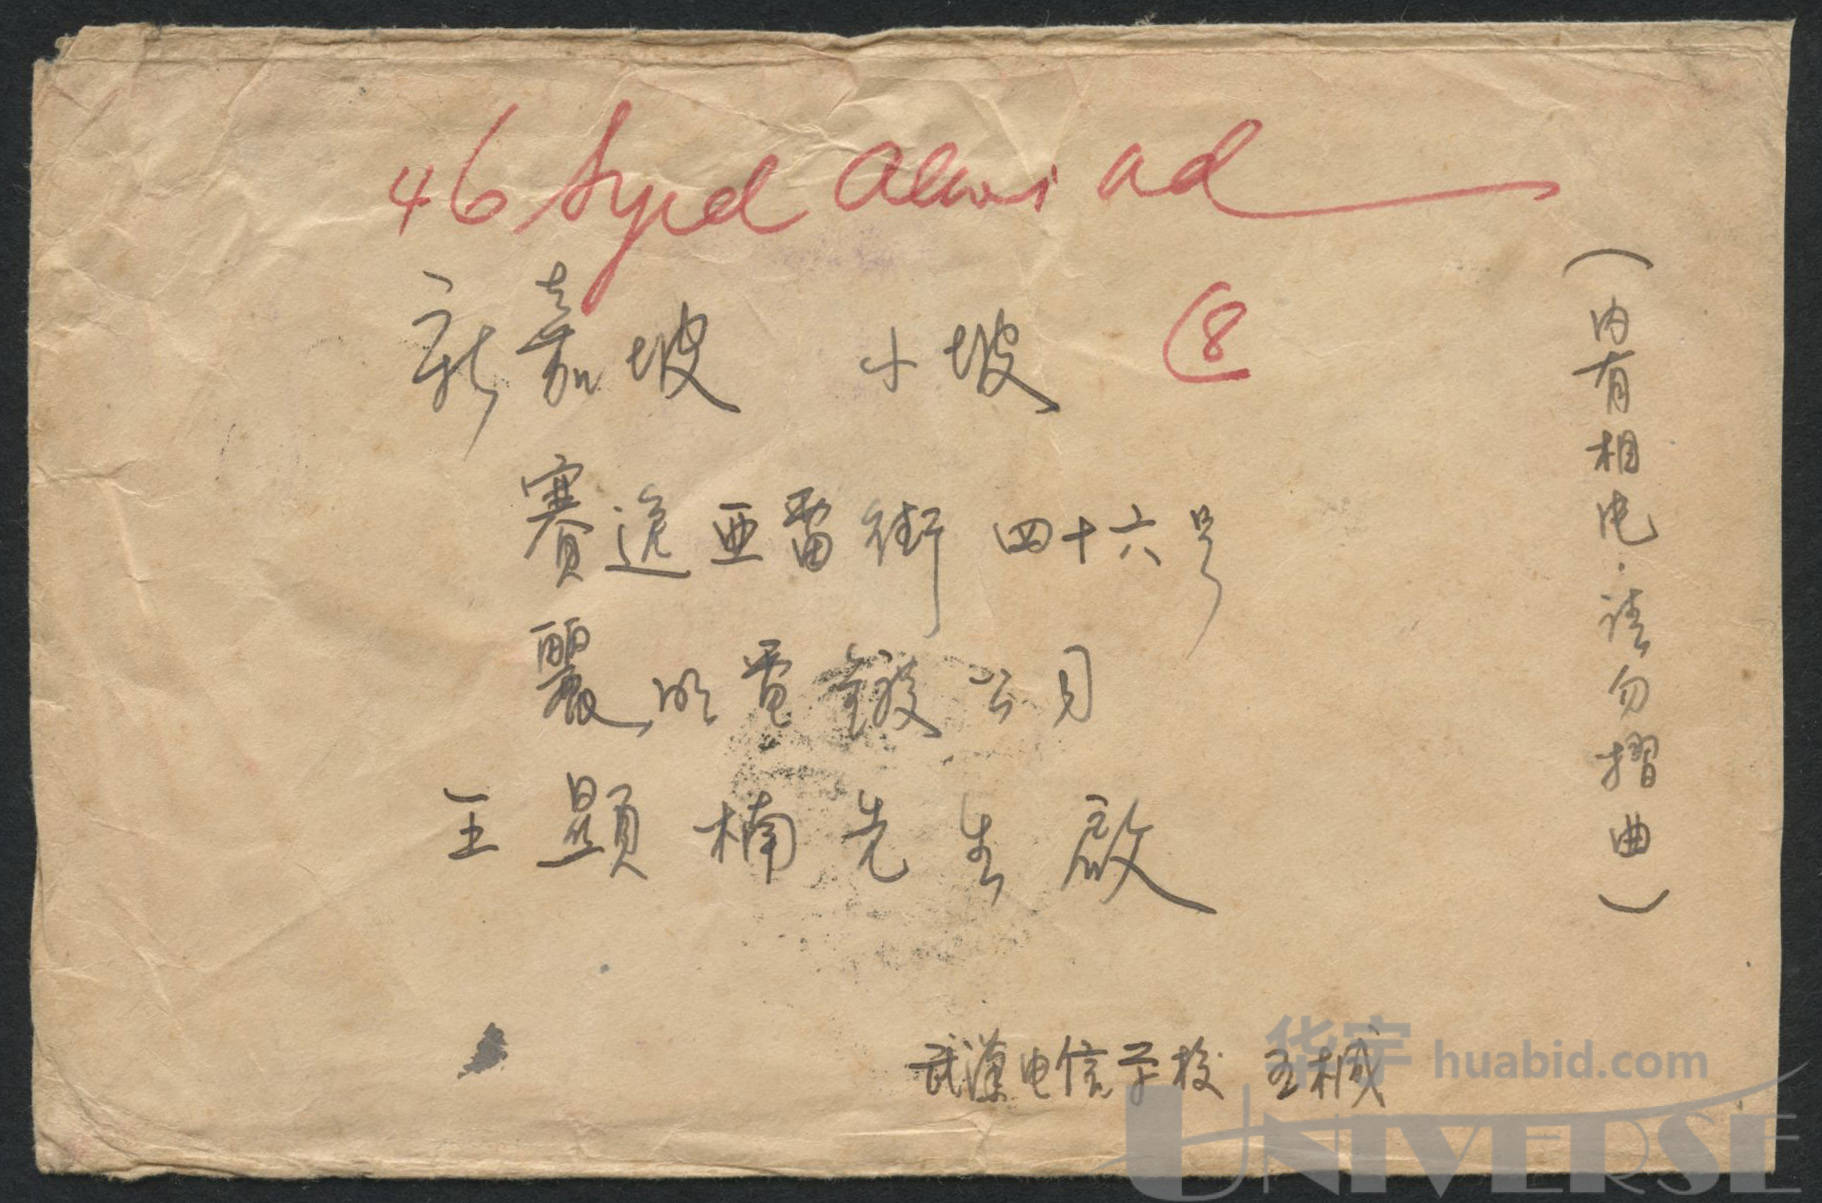 46 Syed Alwi Rd
新嘉坡 小坡
8
賽逸亚雷街 四十六号
麗的電鍍公司
王顕楠先生啟
(内有相片.请勿摺曲)
武漢电信学校 王楲
华宇 huabid.com
UNIVERSE